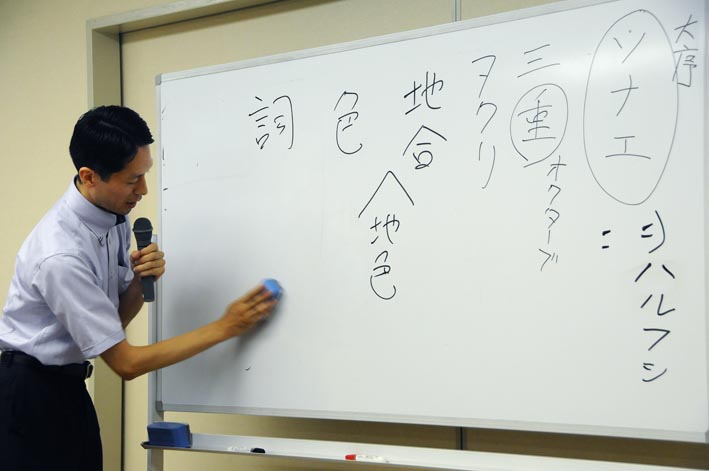 大序
ソナエ
ハルフシ
三重
オクターブ
ヲクリ
地合
地色
色
詞